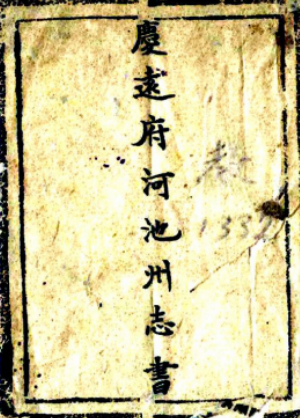 慶遠府河池州志書
133